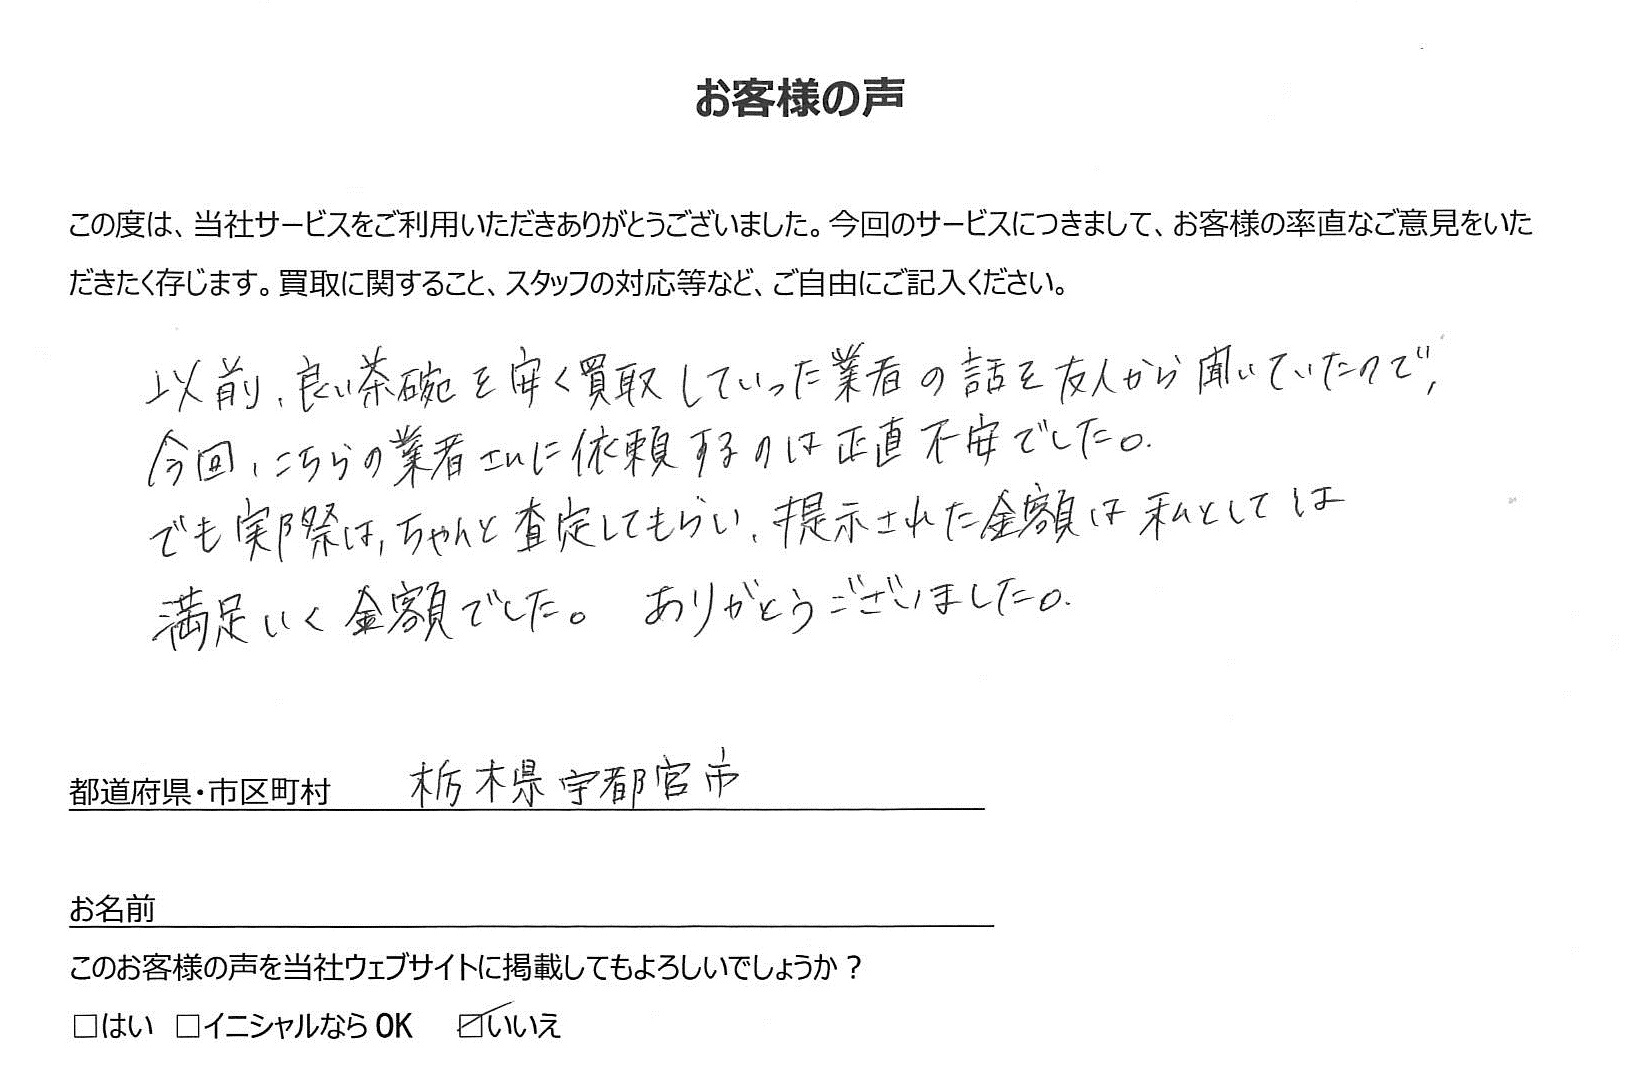 お客様の声
この度は、当社サービスをご利用いただきありがとうございました。今回のサービスにつきまして、お客様の率直なご意見をいた
だきたく存じます。買取に関すること、スタッフの対応等など、ご自由にご記入ください。
以前、良い茶碗を安く買取していった業者の話を友人から聞いていたので、
今回、こちらの業者さんに依頼するのは正直不安でした。
でも実際は、ちゃんと査定してもらい、提示された金額は私としては
満足いく金額でした。 ありがとうございました。
都道府県・市区町村 栃木県宇都宮市
お名前
このお客様の声を当社ウェブサイトに掲載してもよろしいでしょうか？
□はい □イニシャルならOK ☑いいえ